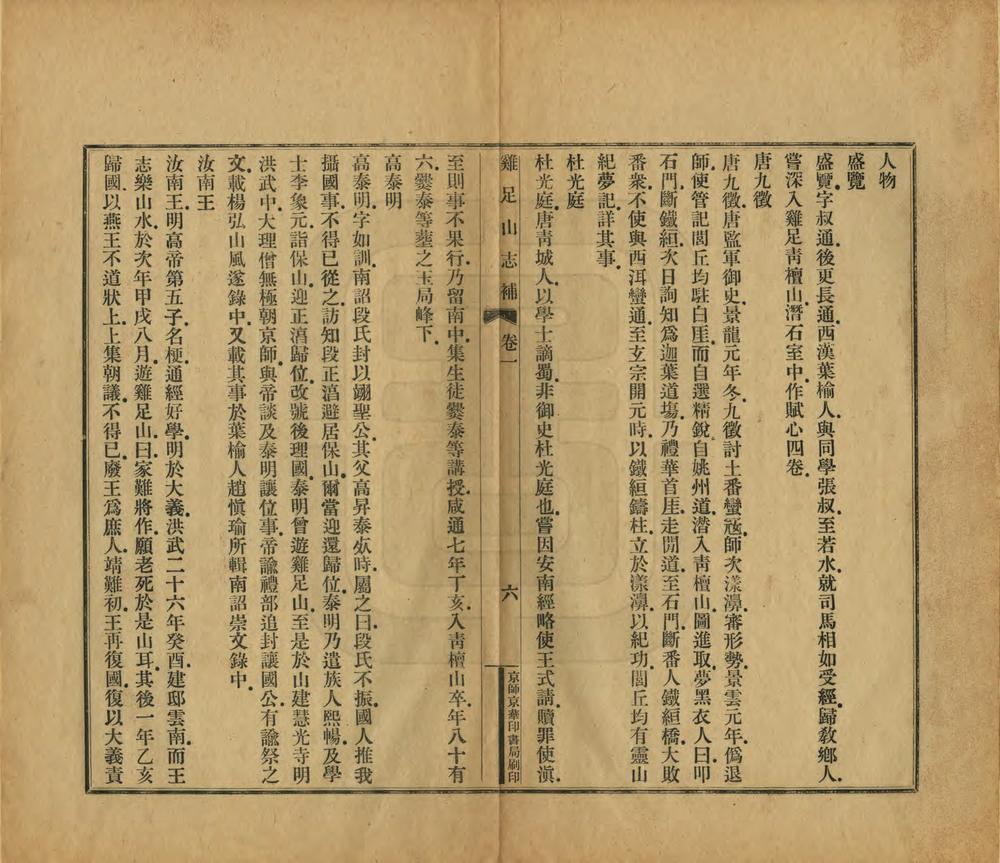 人物
盛覽
盛覽字叔通後更長通西漢葉榆人與同學張叔至若水就司馬相如受經歸敎鄉人
嘗深入雞足靑檀山潛石室中作賦心四卷
唐九徵
唐九徵唐監軍御史景龍元年冬九徵討土番蠻寇師次漾濞審形勢景雲元年僞退
師使管記閭丘均駐白厓而自選精銳自姚州道潛入靑檀山圖進取夢黑衣人曰叩
石門斷鐵絙次日詢知爲迦葉道塲乃禮華首厓走閒道至石門斷番人鐵絙橋大敗
番衆不使與西洱蠻通至玄宗開元時以鐵絙鑄柱立於漾濞以紀功閭丘均有靈山
紀夢記詳其事
杜光庭
杜光庭唐靑城人以學士謫蜀非御史杜光庭也嘗因安南經略使王式請贖罪使滇
雞足山志補 卷一 六 京師京華印書局刷印
至則事不果行乃留南中集生徒爨泰等講授咸通七年丁亥入靑檀山卒年八十有
六爨泰等塟之玉局峰下
高泰明
高泰明字如訓南詔段氏封以翊聖公其父高昇泰於時屬之曰段氏不振國人推我
攝國事不得已從之訪知段正湻避居保山爾當迎還歸位泰明乃遣族人熙暢及學
士李象元詣保山迎正湻歸位改號後理國泰明曾遊雞足山至是於山建慧光寺明
洪武中大理僧無極朝京師與帝談及泰明讓位事帝諭禮部追封讓國公有諭祭之
文載楊弘山風邃錄中又載其事於葉榆人趙愼瑜所輯南詔崇文錄中
汝南王
汝南王明高帝第五子名梗通經好學明於大義洪武二十六年癸酉建邸雲南而王
志樂山水於次年甲戌八月遊雞足山曰家難將作願老死於是山耳其後一年乙亥
歸國以燕王不道狀上上集朝議不得已廢王爲庶人靖難初王再復國復以大義責